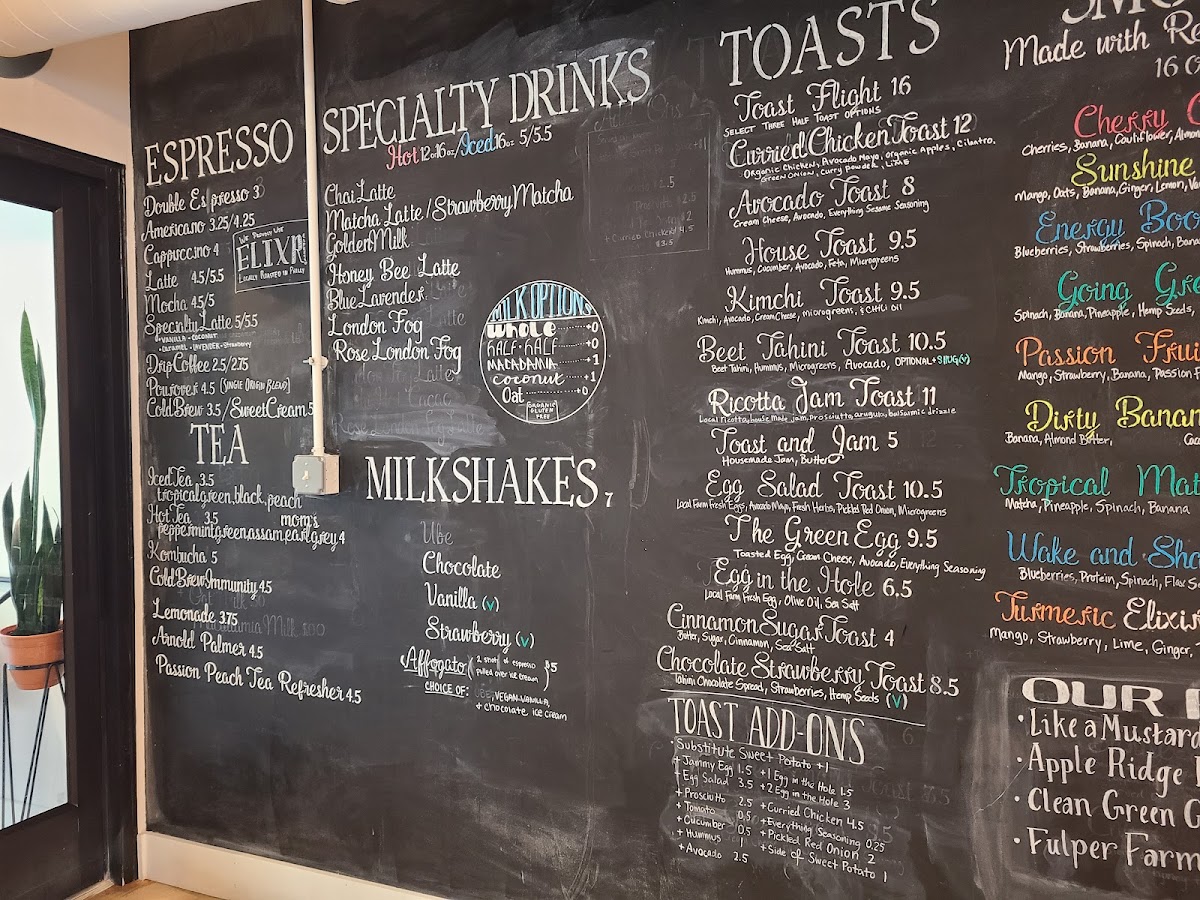 ESPRESSO
Double Espresso 3
Americano 3.25/4.25
Cappuccino 4
Latte 4.5/5.5
Mocha 4.5/5
Specialty Latte 5/5.5
• VANILLA • COCONUT
• CARAMEL • LAVENDER • Strawberry
Drip Coffee 2.5/2.75
Pourover 4.5 (SINGLE ORIGIN BLEND)
Cold Brew 3.5 / Sweet Cream 5
WE PROUDLY USE
ELIXR
LOCALLY ROASTED IN PHILLY
TEA
Iced Tea 3.5
tropical green, black, peach
Hot Tea 3.5 mom's
peppermint, green, assam, earl grey, 4
Kombucha 5
Cold Brew Immunity 4.5
Lemonade 3.75
Arnold Palmer 4.5
Passion Peach Tea Refresher 4.5
SPECIALTY DRINKS
Hot 12oz 16oz / Iced 16oz 5/5.5
Chai Latte
Matcha Latte / Strawberry Matcha
Golden Milk
Honey Bee Latte
Blue Lavender
London Fog
Rose London Fog
MILK OPTIONS
WHOLE +0
HALF·HALF +0
MACADAMIA +1
coconut +1
Oat +0
ORGANIC
GLUTEN
FREE
MILKSHAKES 7
Ube
Chocolate
Vanilla (V)
Strawberry (V)
Affogato (2 shots of espresso
pulled over ice cream) $5
CHOICE OF: UBE, VEGAN VANILLA,
+ chocolate ice cream
TOASTS
Toast Flight 16
SELECT THREE HALF TOAST OPTIONS
Curried Chicken Toast 12
Organic Chicken, Avocado Mayo, Organic Apples, Cilantro,
Green Onion, Curry Powder, Lime
Avocado Toast 8
Cream Cheese, Avocado, Everything Sesame Seasoning
House Toast 9.5
Hummus, Cucumber, Avocado, Feta, Microgreens
Kimchi Toast 9.5
Kimchi, Avocado, Cream Cheese, microgreens, & CHILI OIL
Beet Tahini Toast 10.5
Beet Tahini, Hummus, Microgreens, Avocado, OPTIONAL +
Ricotta Jam Toast 11
Local ricotta, house made jam, prosciutto, arugula, balsamic drizzle
Toast and Jam 5
Housemade Jam, Butter
Egg Salad Toast 10.5
Local Farm Fresh Eggs, Avocado Mayo, Fresh Herbs, Pickled Red Onion, Microgreens
The Green Egg 9.5
Toasted Egg, Cream Cheese, Avocado, Everything Seasoning
Egg in the Hole 6.5
Local Farm Fresh Egg, Olive Oil, Sea Salt
Cinnamon Sugar Toast 4
Butter, Sugar, Cinnamon, Sea Salt
Chocolate Strawberry Toast 8.5
Tahini Chocolate Spread, Strawberries, Hemp Seeds (V)
TOAST ADD-ONS
• Substitute Sweet Potato +1
+ Jammy Egg 1.5 +1 Egg in the Hole 1.5
+ Egg Salad 3.5 +2 Egg in the Hole 3
+ Prosciutto 2.5 + Curried Chicken 4.5
+ Tomato 0.5 + Everything Seasoning 0.25
+ Cucumber 0.5 + Pickled Red Onion 2
+ Hummus 1 + Side of Sweet Potato 1
+ Avocado 2.5
Made with Re
16 o
Cherry
Cherries, Banana, Cauliflower, Almon
Sunshine
Mango, Oats, Banana, Ginger, Lemon,
Energy Boo
Blueberries, Strawberries, Spinach, Bana
Going Gre
Spinach, Banana, Pineapple, Hemp Seeds,
Passion Frui
Mango, Strawberry, Banana, Passion F
Dirty Banan
Banana, Almond Butter, Caca
Tropical Mat
Matcha, Pineapple, Spinach, Banana
Wake and Sha
Blueberries, Protein, Spinach, Flax S
Turmeric Elixir
Mango, Strawberry, Lime, Ginger, T
OUR
• Like a Mustard
• Apple Ridge
• Clean Green G
• Fulper Farm